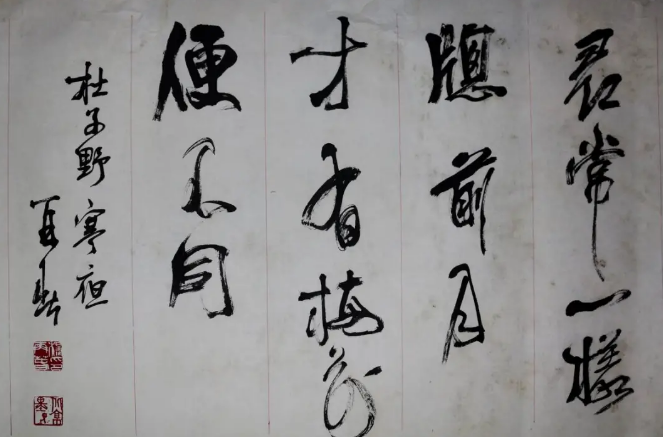 尋常一樣
窓前月
才有梅花
便不同
杜子野寒夜